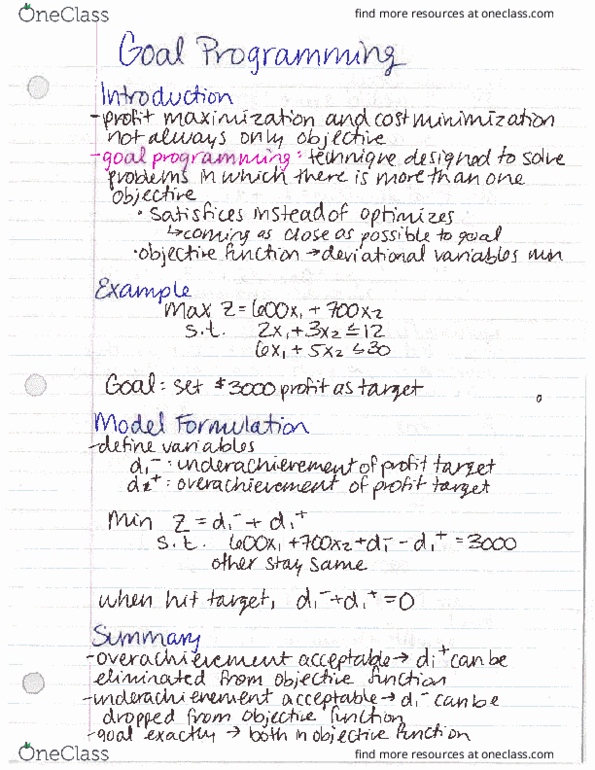 OneClass
find more resources at oneclass.com
Goal Programming
Introduction
-profit maximization and cost minimization
not always only objective
-goal programming: technique designed to solve
problems in which there is more than one
objective
• satisfices instead of optimizes
↳coming as close as possible to goal
•objective function → deviational variables min
Example
Max Z=600x₁ + 700x₂
s.t. 2x₁+3x₂ ≤12
6x₁ + 5x₂ ≤30
Goal: set $3000 profit as target
Model Formulation
-define variables
d₁⁻: underachievement of profit target
d₂⁺: overachievement of profit target
Min Z = d₁⁻ + d₁⁺
s.t. 600x₁ +700x₂+d₁⁻ - d₁⁺ = 3000
other stay same
when hit target, d₁⁻+d₁⁺ =0
Summary
-overachievement acceptable→ d₁⁺ can be
eliminated from objective function
-underachievement acceptable→ d₁⁻ can be
dropped from objective function
-goal exactly → both in objective function
OneClass
find more resources at oneclass.com